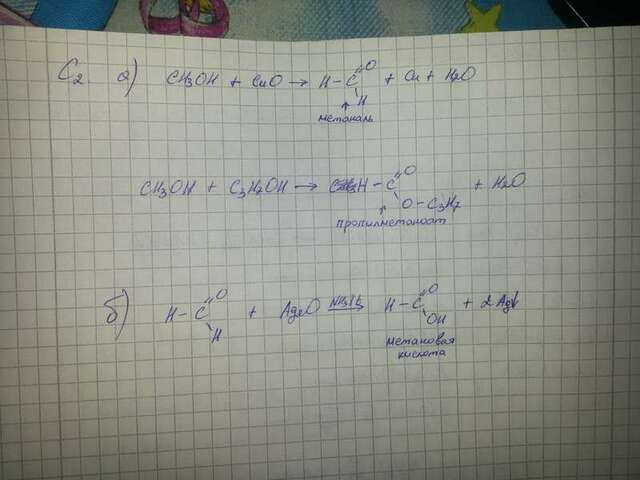 C2. а) CH3OH + CuO → H-C=O H + Cu + H2O
метаналь
CH3OH + C3H7OH → H-C=O O-C3H7 + H2O
пропилметаноат
б) H-C=O H + Ag2O NH3, t → H-C=O OH + 2Ag↓
метановая
кислота